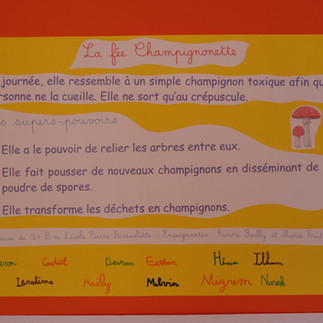 La fée Champignonette
journée, elle ressemble à un simple champignon toxique afin qu
rsonne ne la cueille. Elle ne sort qu'au crépuscule.
s supers-pouvoirs
Elle a le pouvoir de relier les arbres entre eux.
Elle fait pousser de nouveaux champignons en disséminant de
poudre de spores.
Elle transforme les déchets en champignons.
de l'école Pierre Enseignantes Aurore Bailly et Marie
Devran Hina Ilham
Ibrahima Maëly Malvin Meyrem